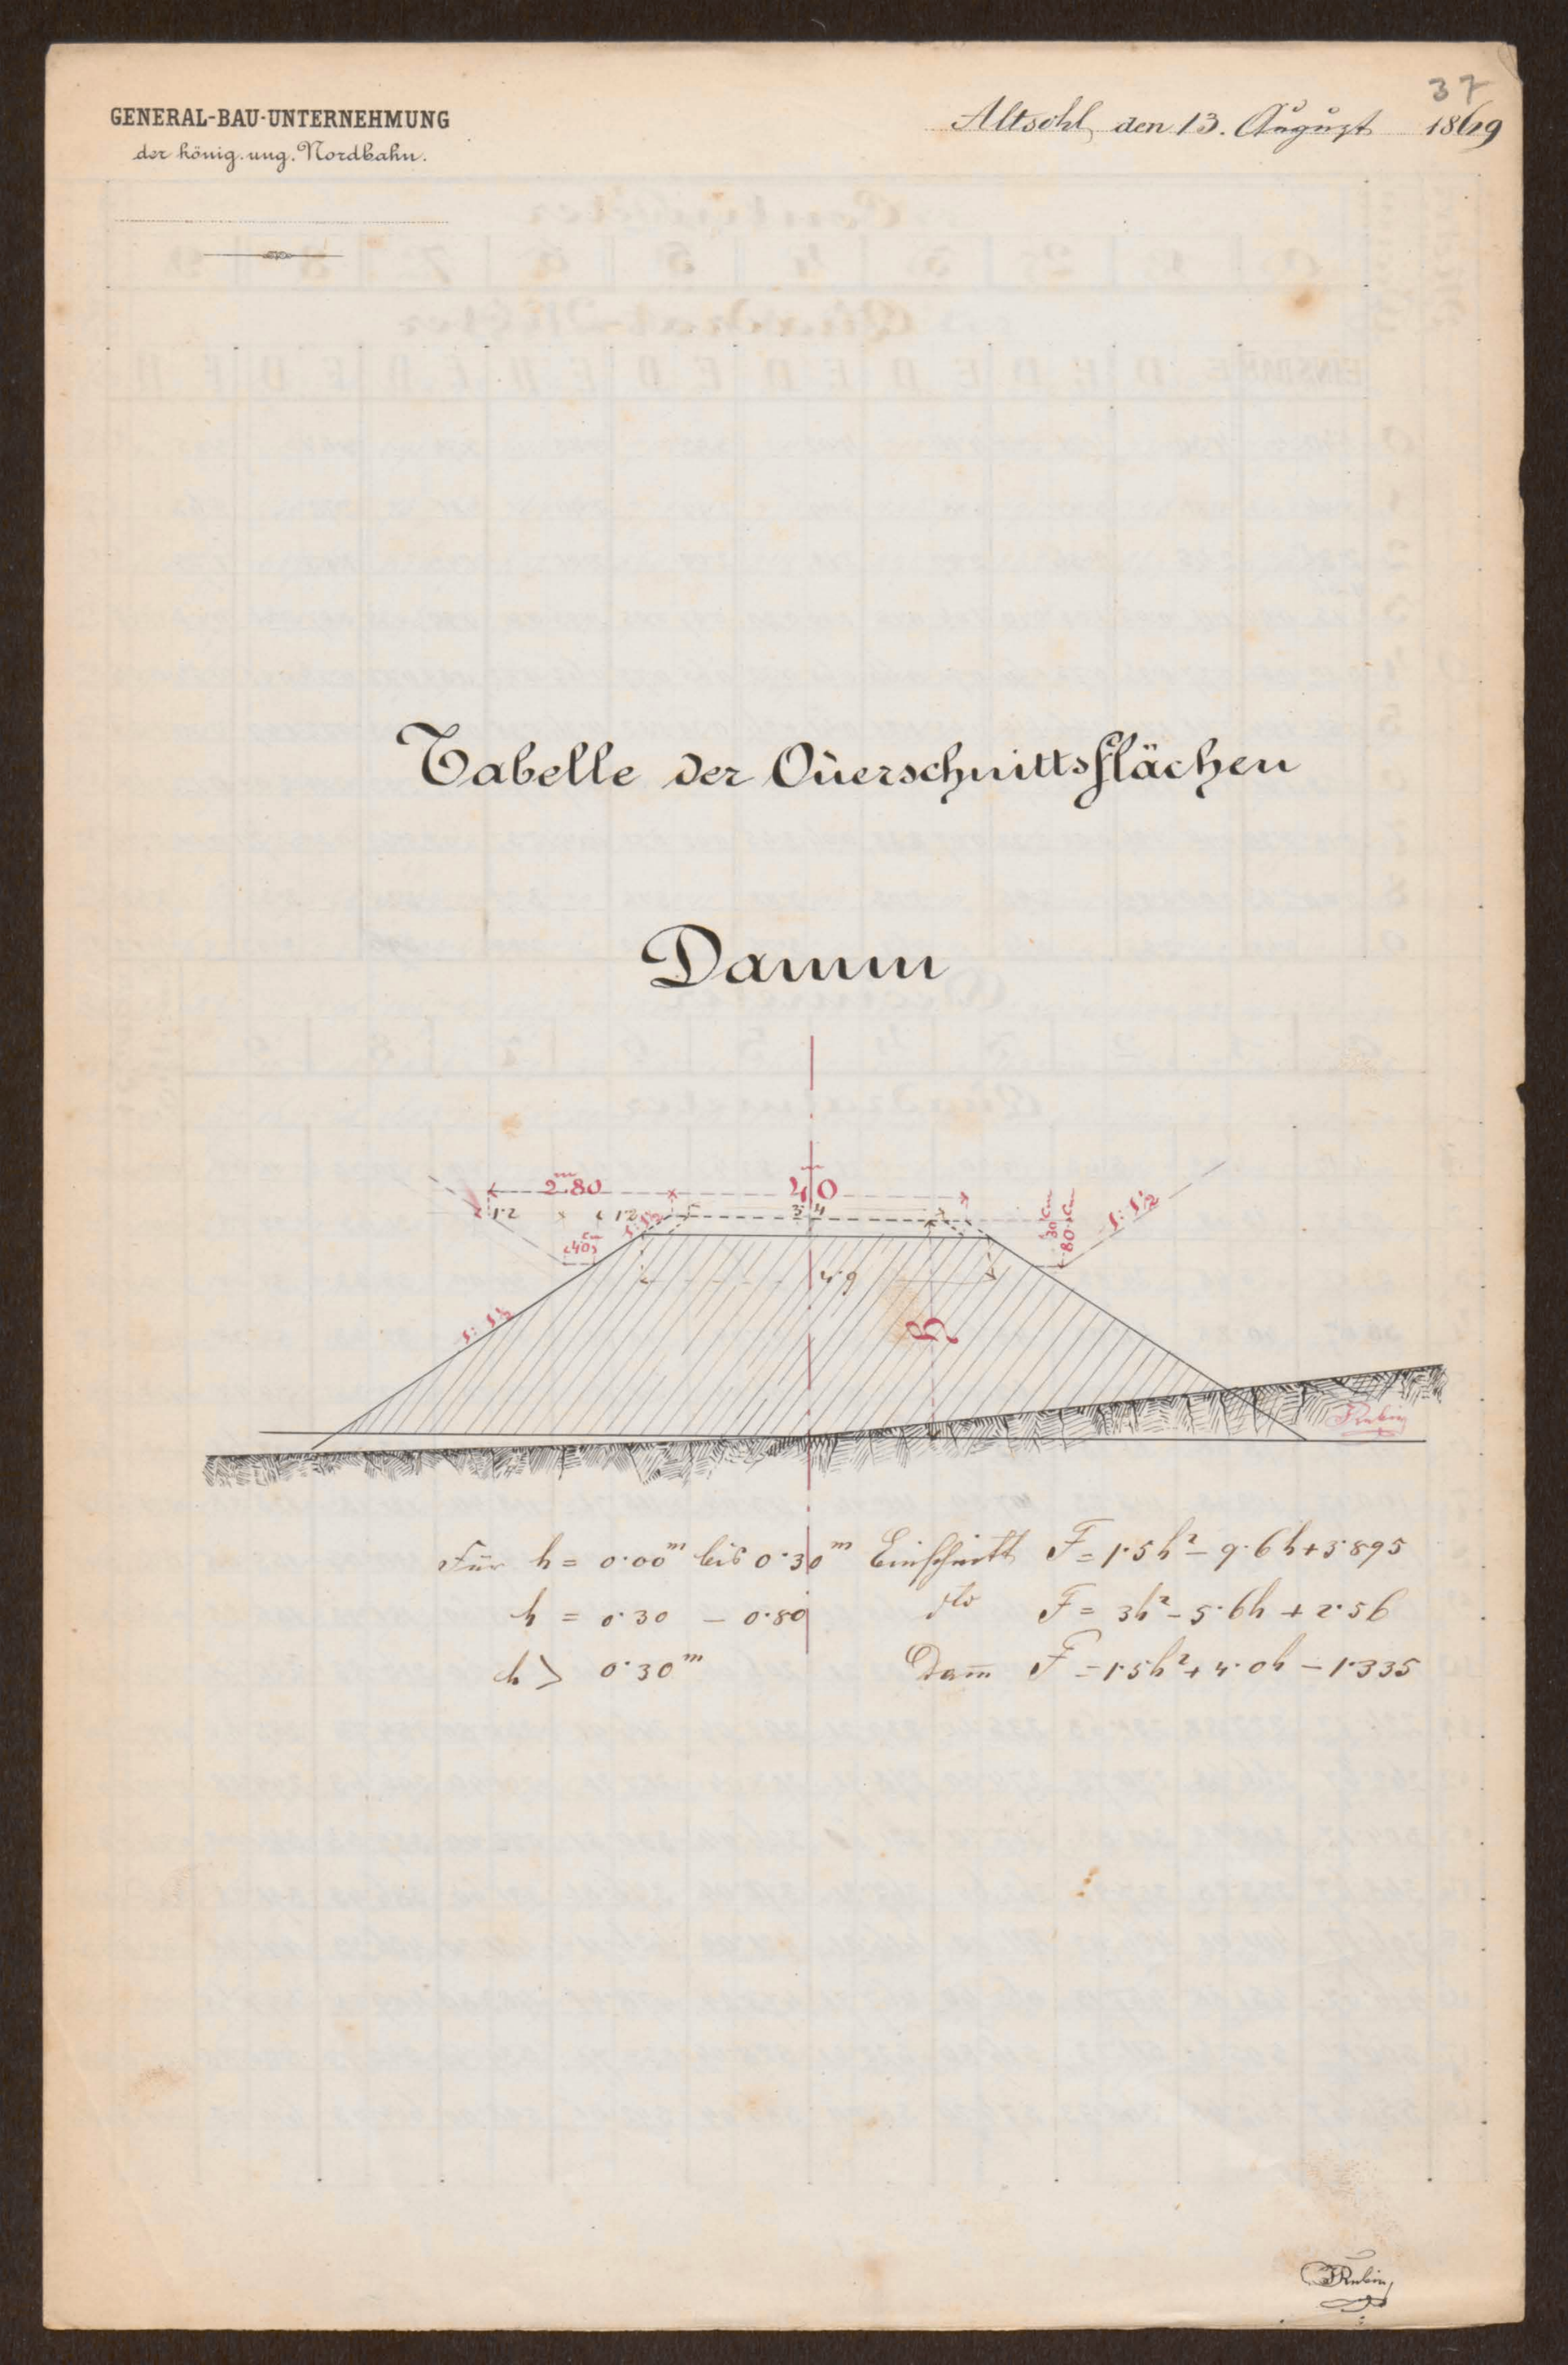 37
GENERAL-BAU-UNTERNEHMUNG
der königl. ung. Nordbahn.
Altsohl, den 13. August 1869
Tabelle der Querschnittsflächen
Damm
2.80 m
4.0 m
1.2
1.2
3.4
1:1½
40 cm
30 cm
80 cm
1:1½
4.9
1:1½
h
Rubin
Für h = 0.00 m bis 0.30 m Einschnitt F = 1.5h² - 9.6h + 3.895
h = 0.30 - 0.80 dto F = 3h² - 5.6h + 2.56
h > 0.30 m Dam̄ F = 1.5h² + 4.0h - 1.335
Rubin